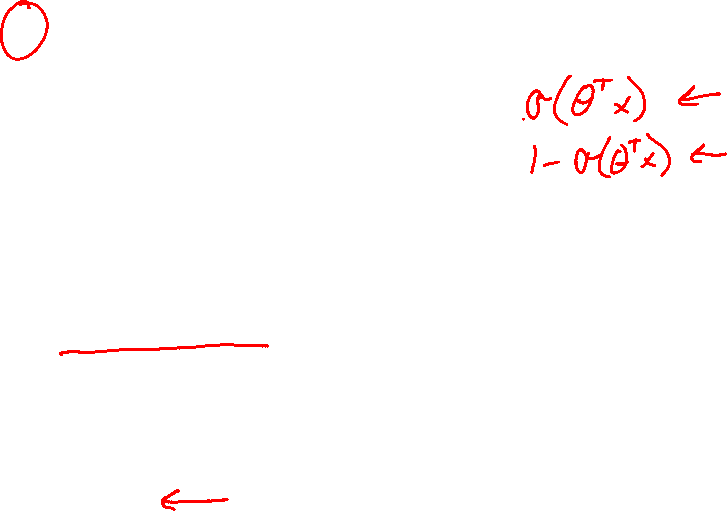 σ(θᵀx) ←
1 - σ(θᵀx) ←
←